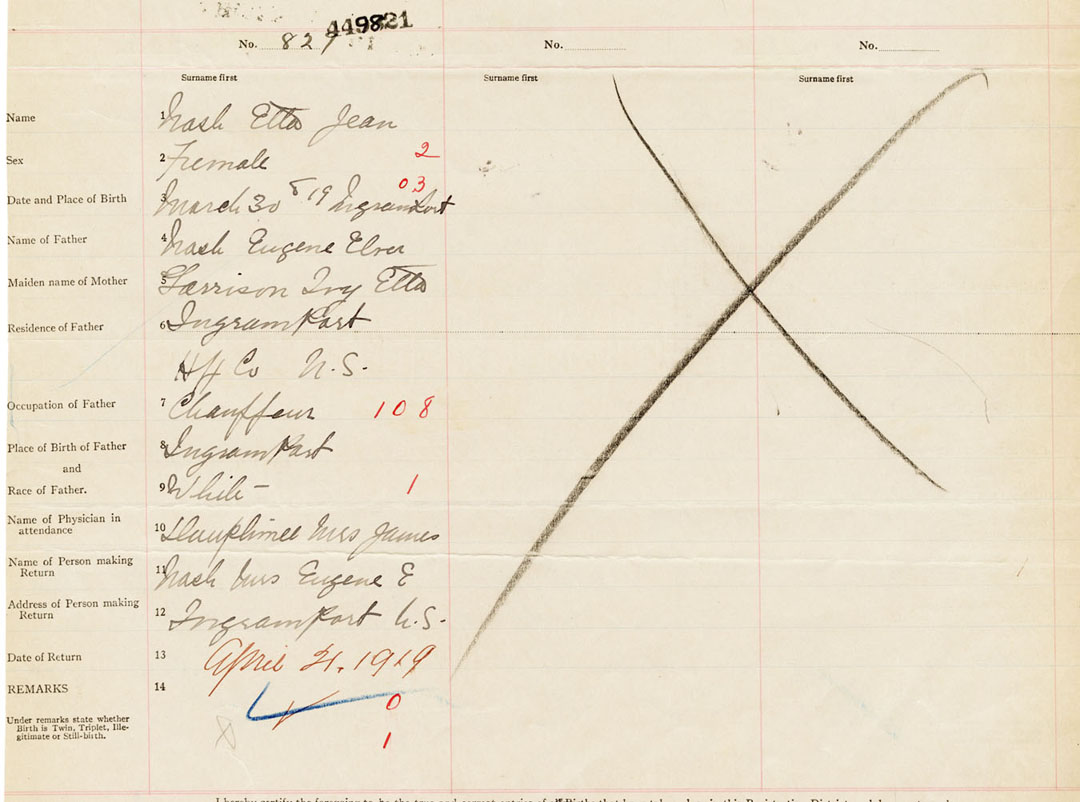 449821
No. 827 No. No.
Surname first Surname first Surname first
Name 1 Nash Etta Jean
Sex 2 Female 2
03
Date and Place of Birth 3 March 30 19 Ingramport
Name of Father 4 Nash Eugene
Maiden name of Mother 5 Harrison Ivy Etta
Residence of Father 6 Ingramport
Hfx Co N.S.
Occupation of Father 7 Chauffeur 108
Place of Birth of Father 8 Ingramport
and
Race of Father. 9 White 1
Name of Physician in
attendance 10 Mrs James
Name of Person making
Return 11 Nash Mrs Eugene E
Address of Person making
Return 12 Ingramport N.S.
Date of Return 13 April 21, 1919
REMARKS 14
0
Under remarks state whether
Birth is Twin, Triplet, Ille-
gitimate or Still-birth. 1